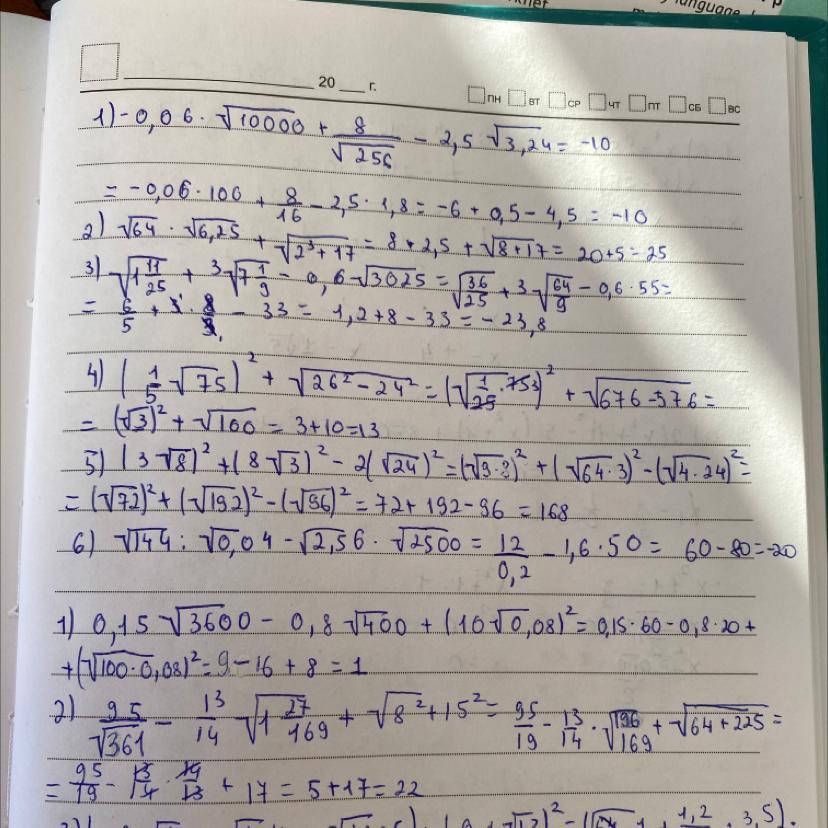 language
20 г.
ПН ВТ СР ЧТ ПТ СБ ВС
1) -0,06 · √10000 + 8/√256 - 2,5 √3,24 = -10
= -0,06 · 100 + 8/16 - 2,5 · 1,8 = -6 + 0,5 - 4,5 = -10
2) √64 · √6,25 + √(2³+17) = 8 · 2,5 + √(8+17) = 20+5=25
3) √(1 11/25) + 3√(7 1/9) - 0,6√3025 = √(36/25) + 3√(64/9) - 0,6 · 55=
= 6/5 + 3 · 8/3 - 33 = 1,2+8-33 = -23,8
4) (1/5 √75)² + √(26²-24²) = (√(1/25 · 75 3))² + √(676-576) =
= (√3)² + √100 = 3+10=13
5) (3√8)² + (8√3)² - 2(√24)² = (√(9·8))² + (√(64·3))² - (√(4·24))² =
= (√72)² + (√192)² - (√96)² = 72+192-96 = 168
6) √144 : √0,04 - √2,56 · √2500 = 12/0,2 - 1,6 · 50 = 60-80=-20
1) 0,15 √3600 - 0,8 √400 + (10√0,08)² = 0,15·60-0,8·20+
+(√(100·0,08))² = 9-16+8 = 1
2) 95/√361 - 13/14 √(1 27/169) + √(8²+15²) = 95/19 - 13/14 · √(196/169) + √(64+225) =
= 95/19 - 13/14 · 14/13 + 17 = 5+17=22